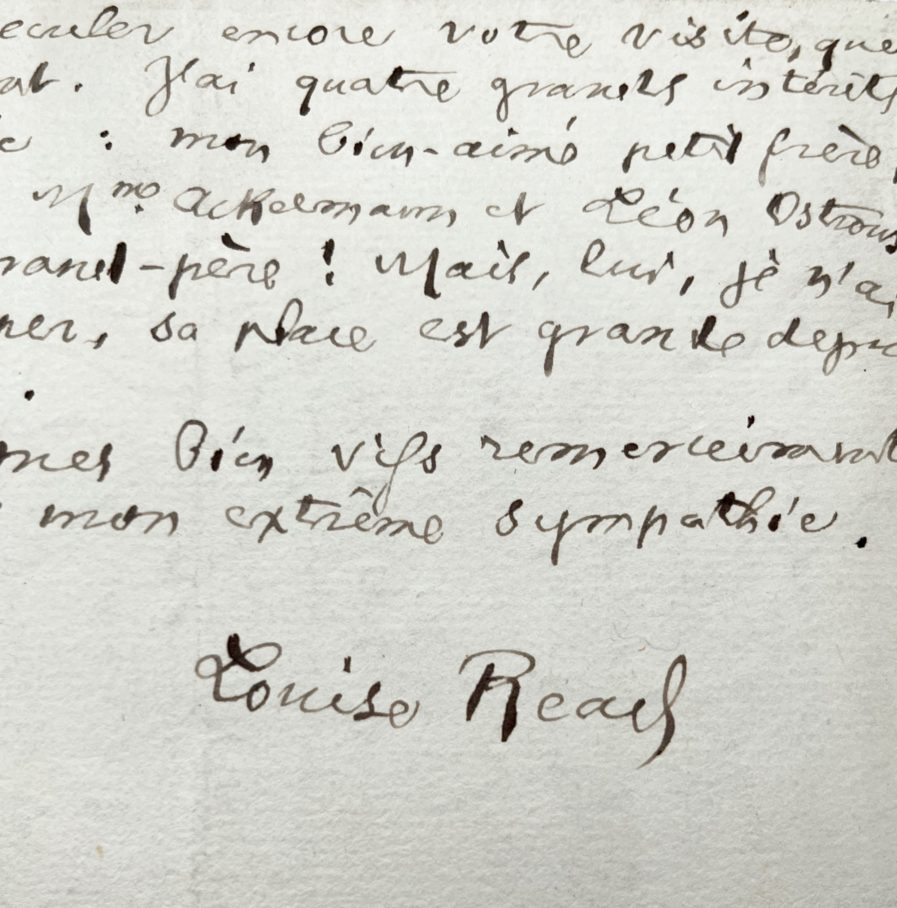 eculer encore votre visite, que
at. J'ai quatre grands intérêts
e : mon bien-aimé petit frère,
Mme Ackermann et Léon Ostrows
rand-père ! Mais, lui, je n'ai
ner, sa place est grande depu
.
mes bien vifs remerciement
mon extrême sympathie.
Louise Read